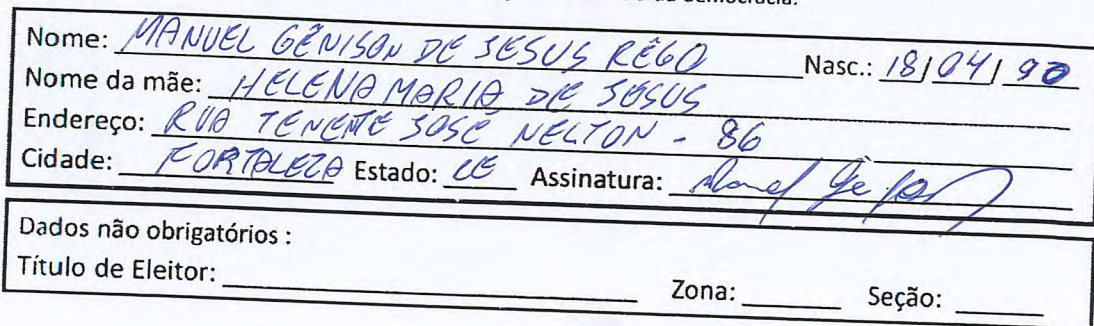 da democracia.
Nome: MANUEL GÊNISON DE JESUS RÊGO Nasc.: 18/04/90
Nome da mãe: HELENA MARIA DE JESUS
Endereço: RUA TENENTE JOSÉ NELTON - 86
Cidade: FORTALEZA Estado: CE Assinatura:
Dados não obrigatórios :
Título de Eleitor: Zona: Seção: